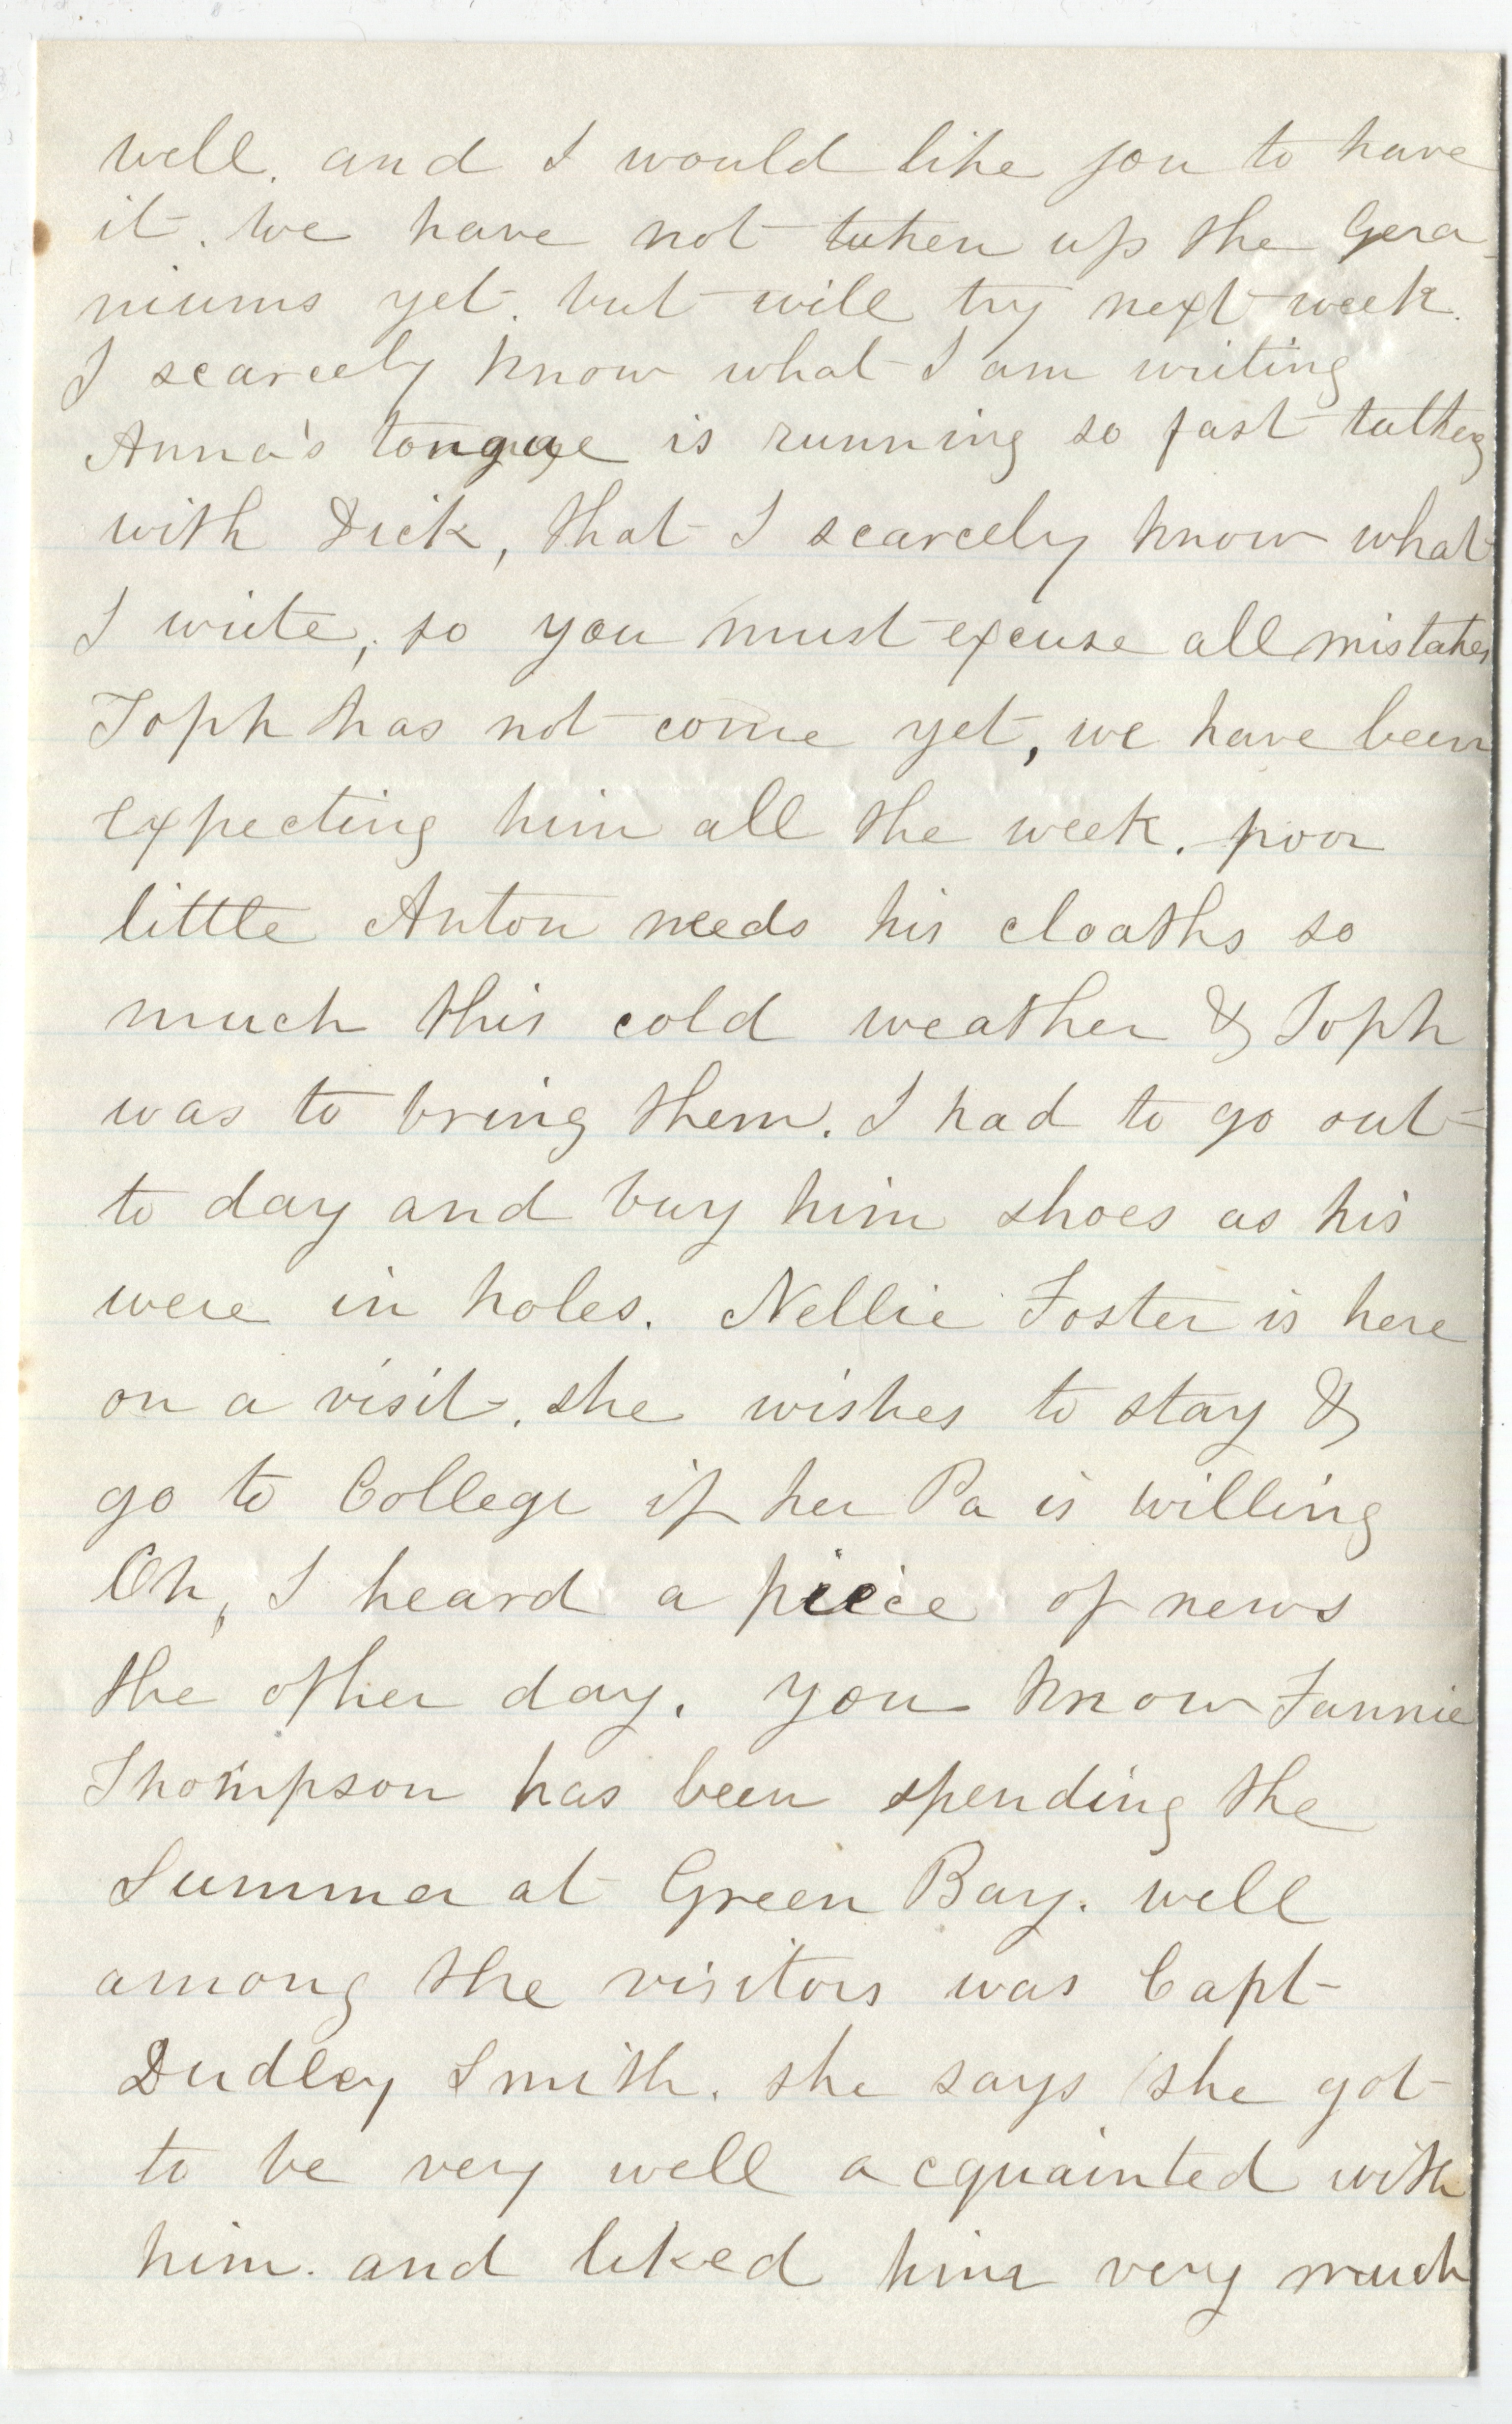 well. and I would like you to have
it. we have not taken up the Gera-
niums yet. but will try next week.
I scarcely know what I am writing
Anna's tongue is running so fast talking
with Dick, that I scarcely know what
I write, so you must excuse all mistakes
Toph has not come yet, we have been
expecting him all the week. poor
little Anton needs his cloaths so
much this cold weather & Toph
was to bring them. I had to go out
to day and buy him shoes as his
were in holes. Nellie Foster is here
on a visit. she wishes to stay &
go to College if her Pa is willing
Oh, I heard a piece of news
the other day. you know Fannie
Thompson has been spending the
Summer at Green Bay. well
among the visitors was Capt
Dudley Smith. she says she got
to be very well acquainted with
him. and liked him very much